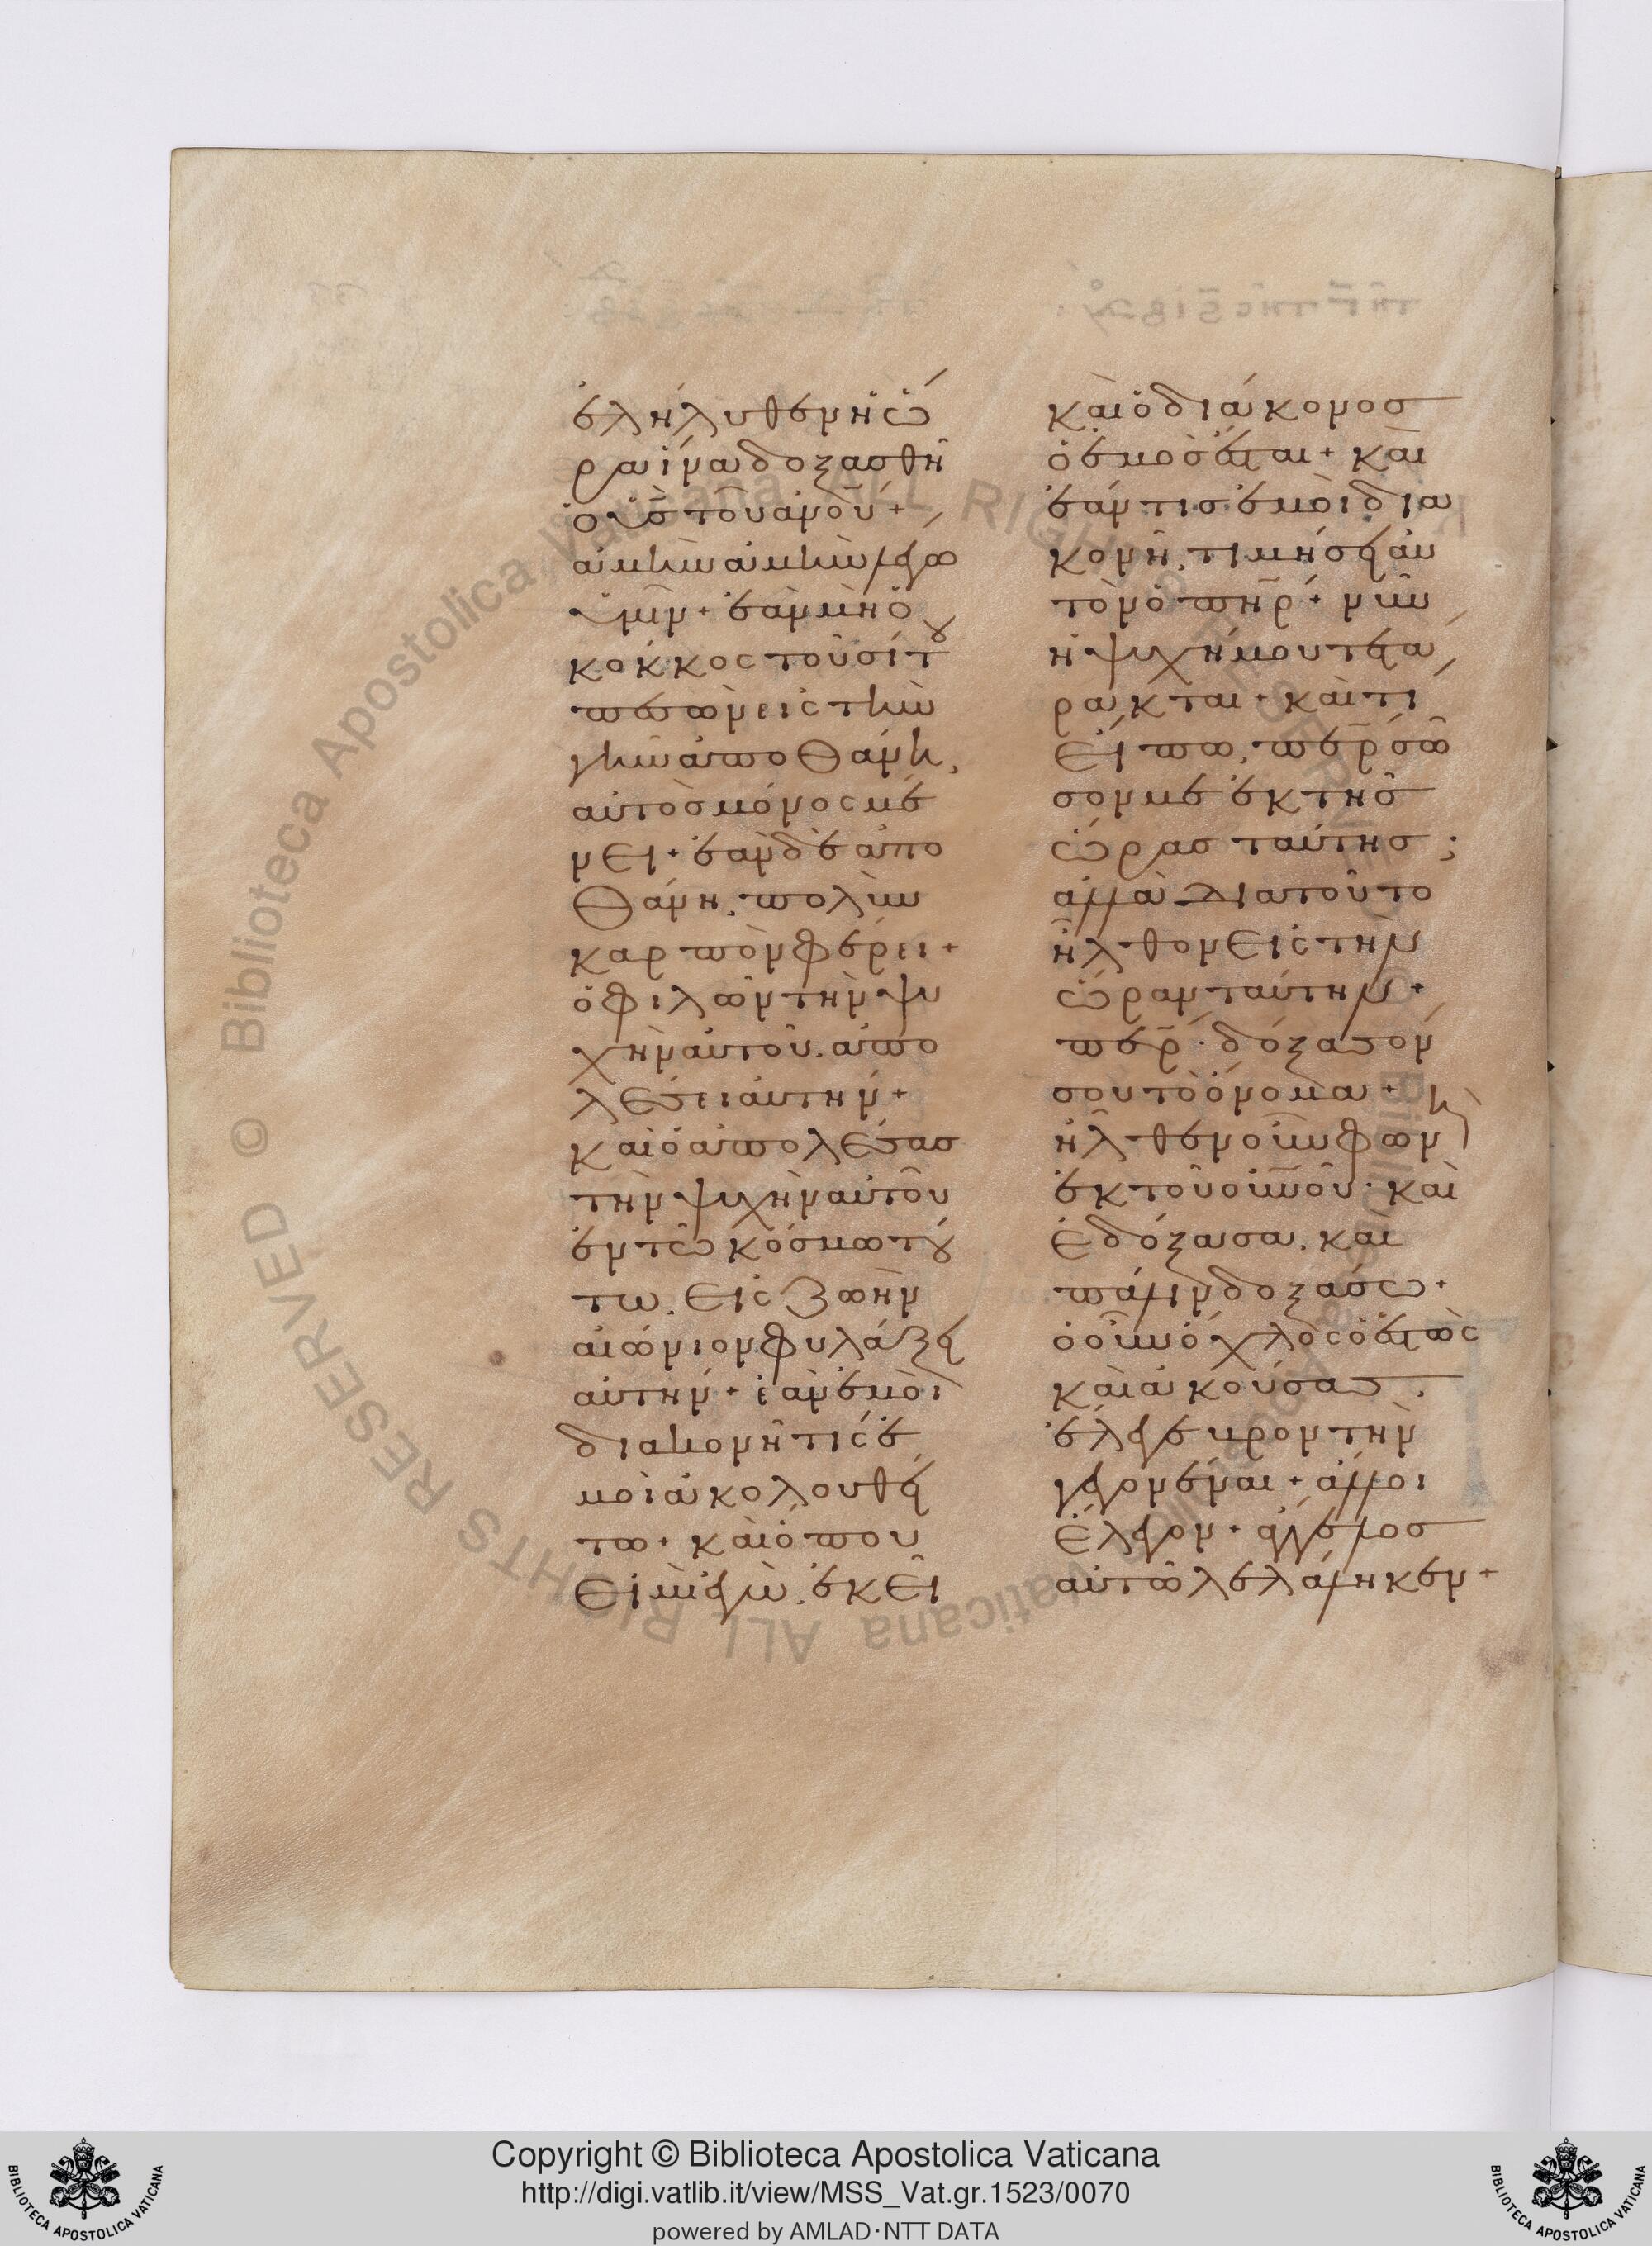 ἐλήλυθεν ἡ ὥ
ρα ἵνα δοξασθῆ
ὁ υς̅ τοῦ ανο̅υ̅ +
ἀμὴν ἀμὴν λέγω
ὑμῖν + ἐὰν μὴ ὁ
κόκκος τοῦ σίτου
πεσὼν εἰς τὴν
γῆν ἀποθάνη,
αὐτὸς μόνος μέ
νει + ἐὰν δὲ ἀπο
θάνη, πολὺν
καρπὸν φέρει +
ὁ φιλῶν τὴν ψυ
χὴν αὐτοῦ. ἀπο
λέσει αὐτήν +
καὶ ὁ ἀπολέσας
τὴν ψυχὴν αὐτοῦ
ἐν τῶ κόσμω τού
τω. εἰς ζωὴν
αἰώνιον φυλάξει
αὐτήν + ἐὰν ἐμοὶ
διακονῆ τίς ἐ
μοὶ ἀκολουθεί
τω + καὶ ὅπου
εἰμὶ ἐγὼ. ἐκεῖ
καὶ ὁ διάκονος
ὁ ἐμὸς ἔσται + καὶ
ἐάν τις ἐμοὶ δια
κονῆ, τιμήσει αὐ
τὸν ὁ πη̅ρ + νῦν
ἡ ψυχή μου τετά
ρακται + καὶ τί
εἴπω, πε̅ρ σῶ
σόν με ἐκ τῆς
ὥρας ταύτης ;
ἀλλὰ διατοῦτο
ἦλθον εἰς τὴν
ὥραν ταύτην +
πε̅ρ · δόξασόν
σου τὸ ὄνομα +
ἦλθεν οὖν φωνὴ
ἐκ τοῦ οὐνο̅ῦ · καὶ
ἐδόξασα. καὶ
πάλιν δοξάσω +
ὁ οὖν ὄχλος ὁ ἑστὼς
καὶ ἀκούσας.
ἔλεγεν βροντὴν
γεγονέναι + ἄλλοι
ἔλεγον + ἄγγελος
αὐτῶ λελάληκεν +
Copyright © Biblioteca Apostolica Vaticana
http://digi.vatlib.it/view/MSS_Vat.gr.1523/0070
powered by AMLAD·NTT DATA